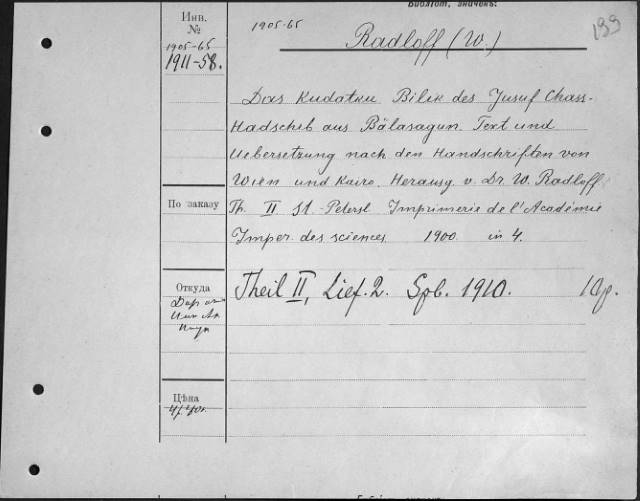 Библіот. значекъ:
Инв.
№
1905-65
1911-58.
1905-65
199
Radloff (W.)
Das Kudatku Bilik des Jusuf Chass-
Hadschib aus Bälasagun Text und
Uebersetzung nach den Handschriften von
Wien und Kairo. Herausg. v. Dr. W. Radloff
По заказу
Th. II St.-Petersb. Imprimerie de l'Académie
Imper. des sciences 1900 in 4.
Откуда
Даръ
Имп. Ак.
Наук
Theil II, Lief. 2. Spb. 1910. 10 р.
Цѣна